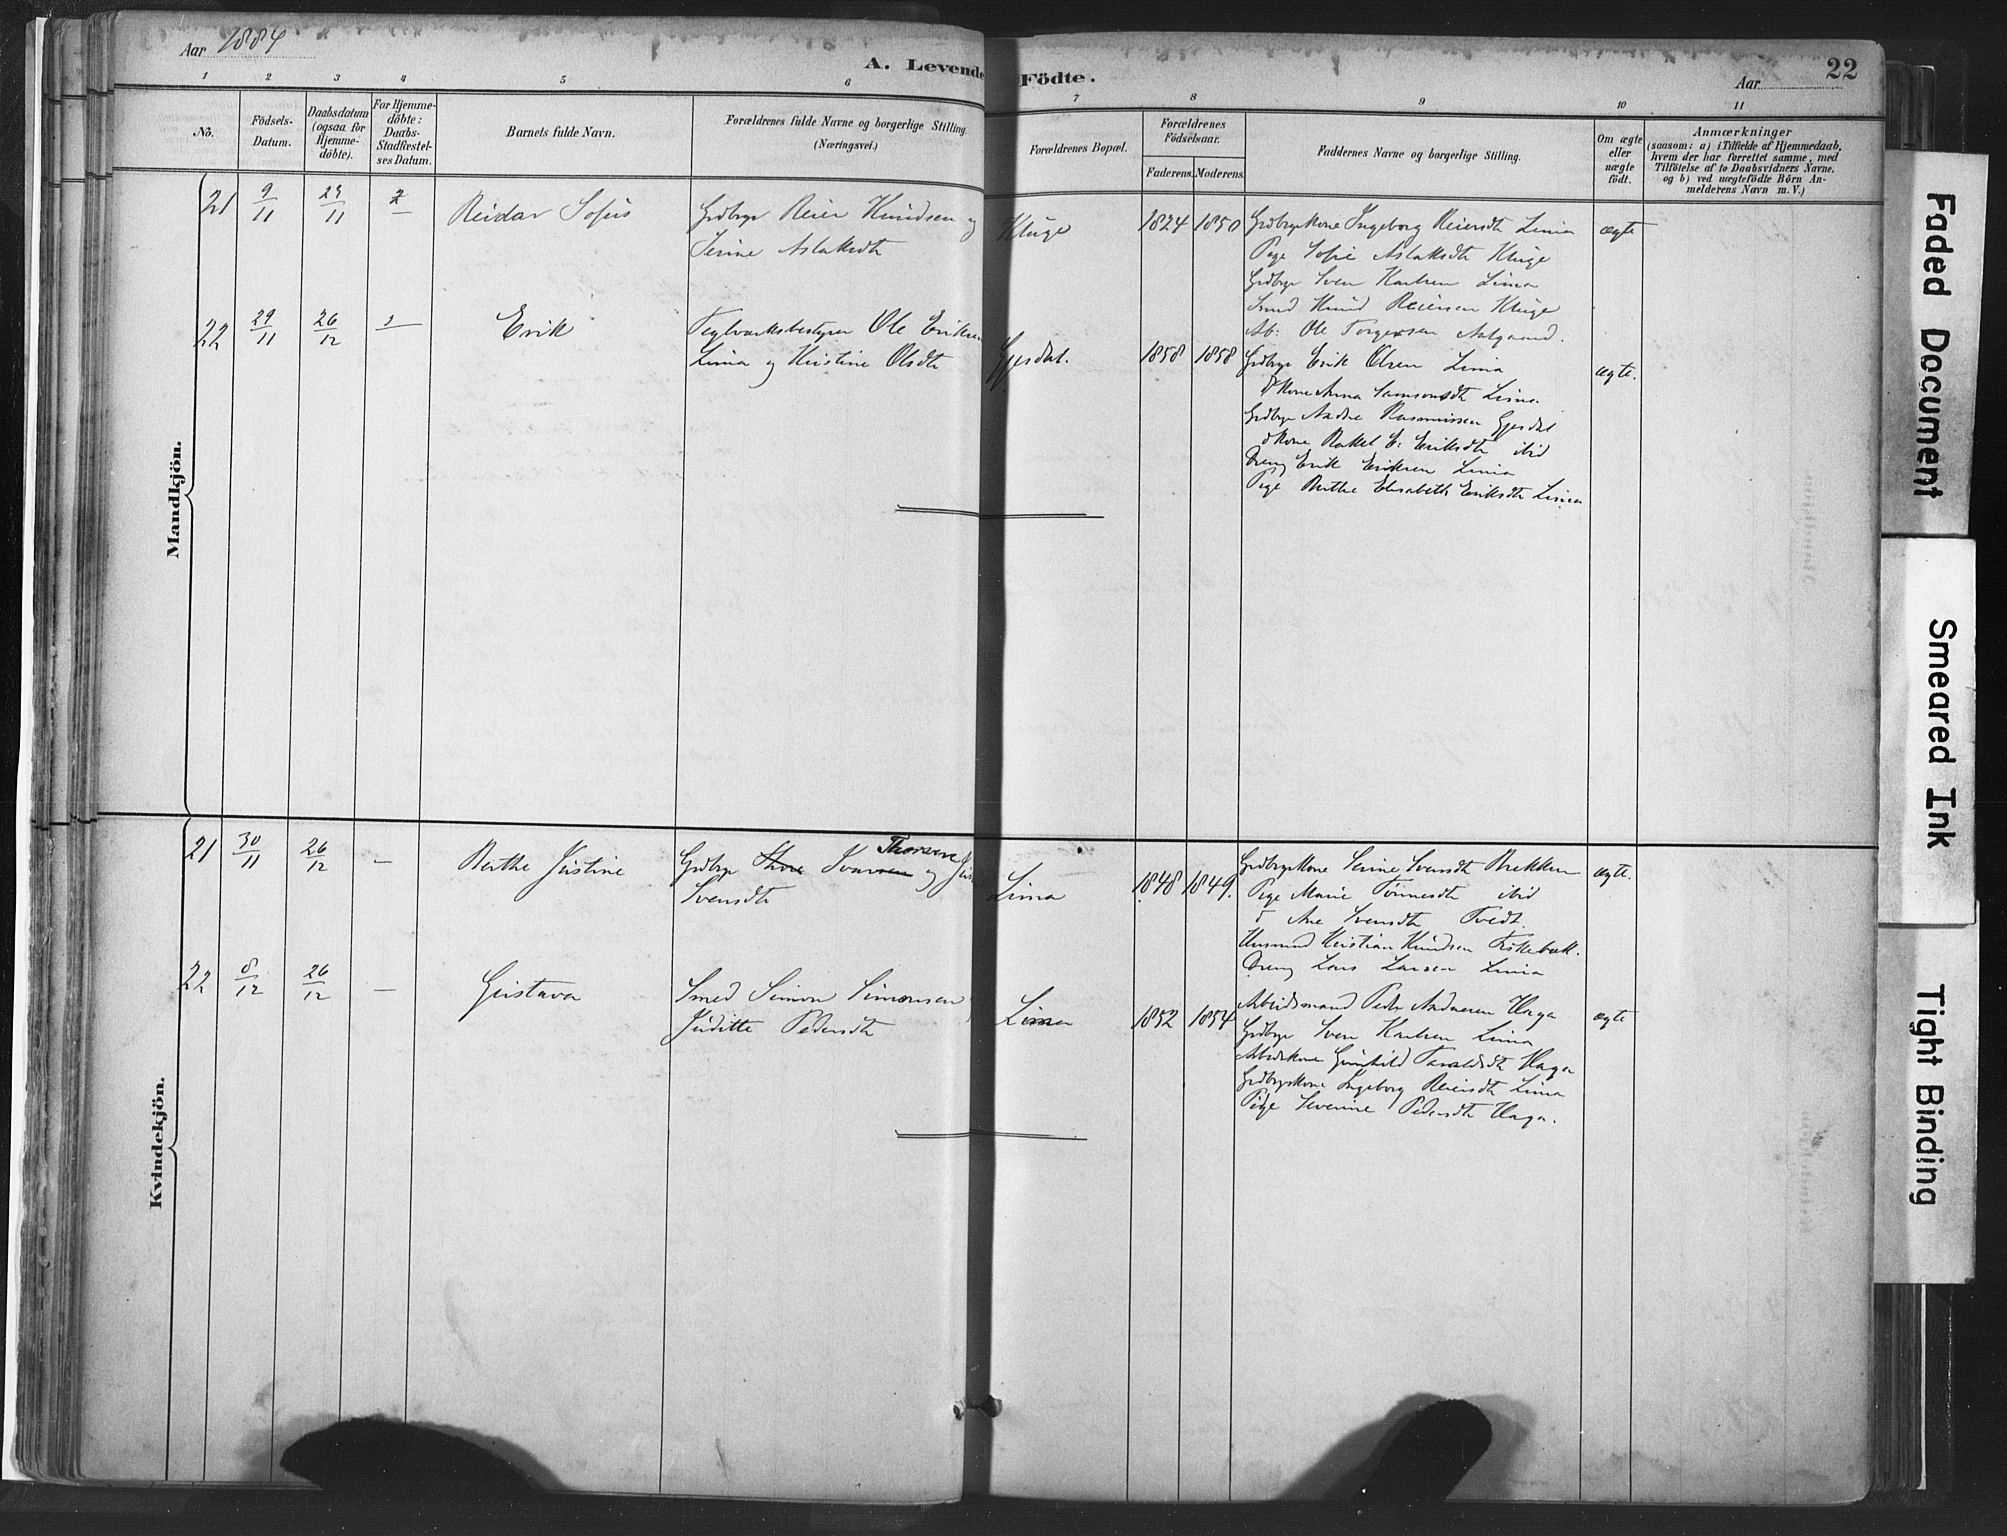 Aar 1884
A. Levende Födte.
Aar
22
1 2 3 4 5 6 7 8 9 10 11
No.
Födsels-Datum.
Daabsdatum (ogsaa for Hjemme-döbte).
For Hjemme-döbte: Daabs-Stadfæstel-ses Datum.
Barnets fulde Navn.
Forældrenes fulde Navne og borgerlige Stilling. (Næringsvei.)
Forældrenes Bopæl.
Forældrenes Födselsaar.
Faderens. Moderens.
Faddernes Navne og borgerlige Stilling.
Om ægte eller uægte födt.
Anmærkninger
(saasom: a) i Tilfælde af Hjemmedaab, hvem der har forrettet samme, med Tilföielse af to Daabsvidners Navne. og b) ved uægtefödte Börn An-melderens Navn m. V.)
Mandkjön.
21 9/11 29/11 Reidar Sofus
Grdbrgr Reier Knudsen og
Serine Aslaksdt
Kluge 1824 1850
Grdbrgrkone Ingeborg Reiersdt Lima
Pige Sofie Aslaksdt Kluge
Grdbrgr Sven Karlsen Lima
Knud Reiersen Kluge
Arb: Ole Torgersen Aalgaard.
ægte
22 29/11 26/12 Erik
Teglværksbestyrer Ole Eriksen
Lima og Kristine Olsdt
Gjesdal. 1858 1858
Grdbrgr Erik Olsen Lima
Kone Anna Samsonsdt Lima
Grdbrgr Andre Rasmussen Gjesdal
Kone Rakel E. Eriksdt ibid
Dreng Erik Eriksen Lima
Pige Berthe Elisabeth Eriksdt Lima
ægte.
Kvindekjön.
21 30/11 26/12 — Berthe Justine
Thorsen
Grdbrgr Thore Ivarsen og
Svensdt
Lima 1848 1849.
Grdbrgrkone Serine Svensdt Brekken
Pige Marie Tönnesdt ibid
Ane Svensdt Tvedt
Husmand Kristian Knudsen Fiskebæk.
Dreng Lars Larsen Lima
ægte.
22 8/12 26/12 — Gustava
Smed Simon Simonsen
Juditte Pedersdt
Lima 1852 1854
Arbeidsmand Peder Andersen Haga
Grdbrgr Sven Karlsen Lima
Arbeidskone Gunhild Taraldsdt Haga
Grdbrgrkone Ingeborg Reiersdt Lima
Pige Severine Pedersdt Haga.
ægte
Faded Document
Smeared Ink
Tight Binding